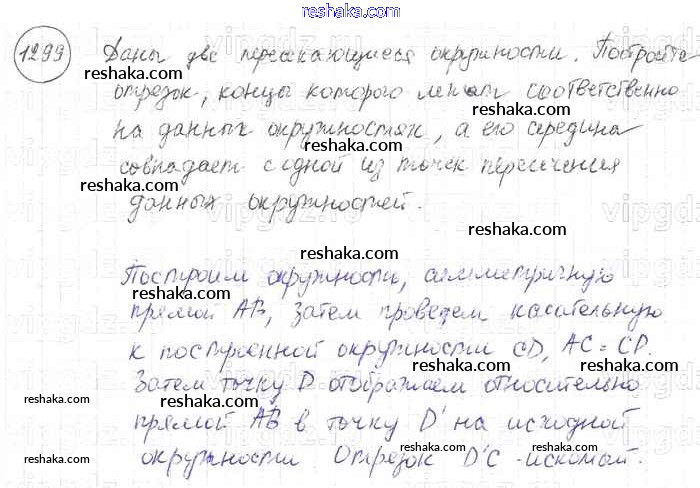 reshaka.com
1299 Даны две пересекающиеся окружности. Постройте
reshaka.com reshaka.com
отрезок, концы которого лежат соответственно
reshaka.com reshaka.com
на данных окружностях, а его середина
совпадает с одной из точек пересечения
reshaka.com reshaka.com
данных окружностей.
reshaka.com
Построим окружности, симметричную
reshaka.com
прямой AB, затем проведем касательную
reshaka.com
к построенной окружности CD, AC = CD.
reshaka.com
Затем точку D отображаем относительно
reshaka.com reshaka.com
прямой AB в точку D' на исходной
reshaka.com
окружности Отрезок D'C - искомый.
reshaka.com reshaka.com
reshaka.com